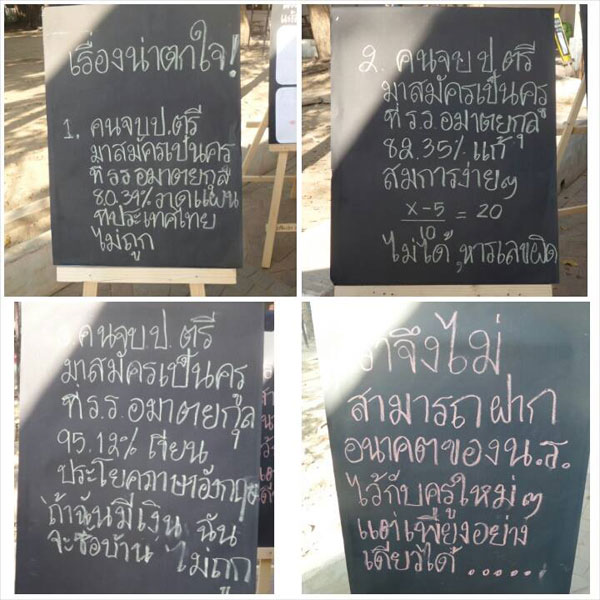 เรื่องน่าตกใจ!
1. คนจบป.ตรี
มาสมัครเป็นครู
ที่ร.ร.อมาตยกุล
80.39% วาดแผน
ที่ประเทศไทย
ไม่ถูก
2. คนจบป.ตรี
มาสมัครเป็นครู
ที่ ร.ร.อมาตยกุล
82.35% แก้
สมการง่ายๆ
x-5/10 = 20
ไม่ได้,หารเลขผิด
คนจบป.ตรี
มาสมัครเป็นครู
ที่ ร.ร.อมาตยกุล
95.12% เขียน
ประโยคภาษาอังกฤษ
"ถ้าฉันมีเงิน ฉัน
จะซื้อบ้าน" ไม่ถูก
เราจึงไม่
สามารถฝาก
อนาคตของน.ร.
ไว้กับครูใหม่ๆ
แต่เพียงอย่าง
เดียวได้ ......